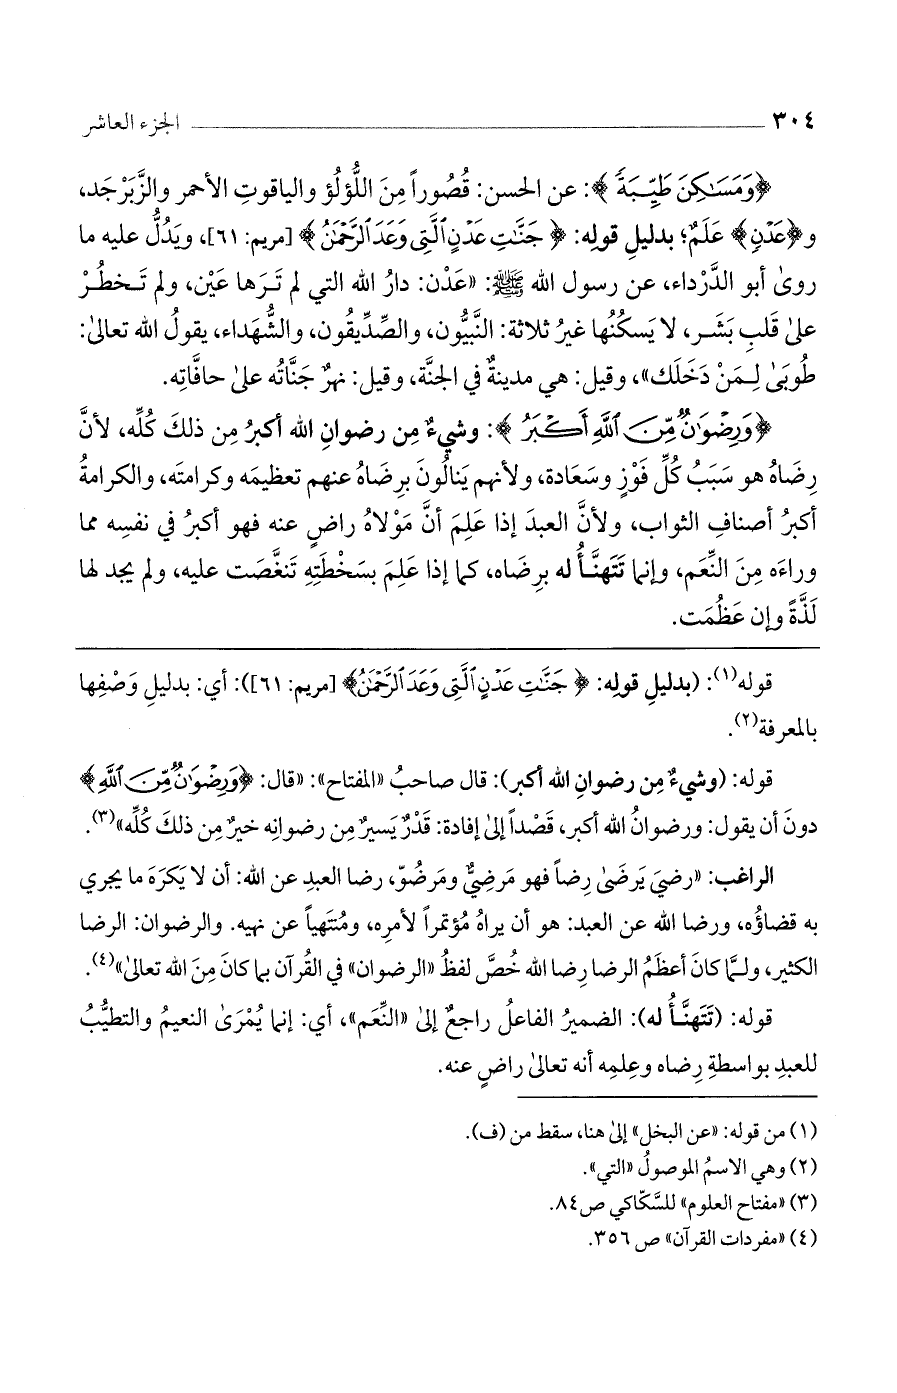 ٣٠٤ الجزء العاشر
﴿وَمَسَٰكِنَ طَيِّبَةً﴾: عن الحسن: قُصُوراً مِنَ اللُّؤلُؤ والياقوتِ الأحمر والزَّبَرْجَد،
و﴿عَدْنٍ﴾ عَلَمٌ؛ بدليلِ قولِه: ﴿جَنَّٰتِ عَدْنٍ ٱلَّتِى وَعَدَ ٱلرَّحْمَٰنُ﴾ [مريم: ٦١]، ويَدُلُّ عليه ما
روىٰ أبو الدَّرْداء، عن رسول الله ﷺ: «عَدْن: دارُ الله التي لم تَرَها عَيْن، ولم تَخطُرْ
علىٰ قَلبِ بَشَر، لا يَسكُنُها غيرُ ثلاثة: النَّبيُّون، والصِّدِّيقُون، والشُّهَداء، يقولُ الله تعالىٰ:
طُوبَىٰ لِمَنْ دَخَلَك»، وقيل: هي مدينةٌ في الجنَّة، وقيل: نهرٌ جَنَّاتُه علىٰ حافَّاتِه.
﴿وَرِضْوَٰنٌ مِّنَ ٱللَّهِ أَكْبَرُ﴾: وشيءٌ مِن رضوانِ الله أكبرُ مِن ذلكَ كُلِّه، لأنَّ
رِضَاهُ هو سَبَبُ كُلِّ فَوْزٍ وسَعَادة، ولأنهم يَنالُونَ برِضَاهُ عنهم تعظيمَه وكرامتَه، والكرامةُ
أكبرُ أصنافِ الثواب، ولأنَّ العبدَ إذا عَلِمَ أنَّ مَوْلاهُ راضٍ عنه فهو أكبرُ في نفسِه مما
وراءَه مِنَ النِّعَم، وإنما تَتَهنَّأُ له برِضَاه، كما إذا عَلِمَ بسَخْطَتِهِ تَنغَّصَت عليه، ولم يجد لها
لَذَّةً وإن عَظُمَت.
قوله(١): (بدليلِ قولِه: ﴿جَنَّٰتِ عَدْنٍ ٱلَّتِى وَعَدَ ٱلرَّحْمَٰنُ﴾ [مريم: ٦١]): أي: بدليلِ وَصْفِها
بالمعرفة(٢).
قوله: (وشيءٌ مِن رضوانِ الله أكبر): قال صاحبُ «المفتاح»: «قال: ﴿وَرِضْوَٰنٌ مِّنَ ٱللَّهِ﴾
دونَ أن يقول: ورضوانُ الله أكبر، قَصْداً إلىٰ إفادة: قَدْرٌ يَسيرٌ مِن رضوانِه خيرٌ مِن ذلكَ كُلِّه»(٣).
الراغب: «رضيَ يَرضَىٰ رِضاً فهو مَرضِيٌّ ومَرضُوّ، رضا العبدِ عن الله: أن لا يَكرَهَ ما يجري
به قضاؤُه، ورضا الله عن العبد: هو أن يراهُ مُؤتمراً لأمرِه، ومُنتَهياً عن نهيه. والرضوان: الرضا
الكثير، ولمَّا كانَ أعظَمُ الرضا رِضا الله خُصَّ لفظُ «الرضوان» في القُرآن بما كانَ مِنَ الله تعالىٰ»(٤).
قوله: (تَتَهنَّأُ له): الضميرُ الفاعلُ راجعٌ إلىٰ «النِّعَم»، أي: إنما يُمْرَىٰ النعيمُ والتطيُّبُ
للعبدِ بواسطةِ رِضاه وعِلمِه أنه تعالىٰ راضٍ عنه.
(١) من قوله: «عن البخل» إلىٰ هنا، سقط من (ف).
(٢) وهي الاسمُ الموصولُ «التي».
(٣) «مفتاح العلوم» للسَّكّاكي ص٨٤.
(٤) «مفردات القرآن» ص ٣٥٦.